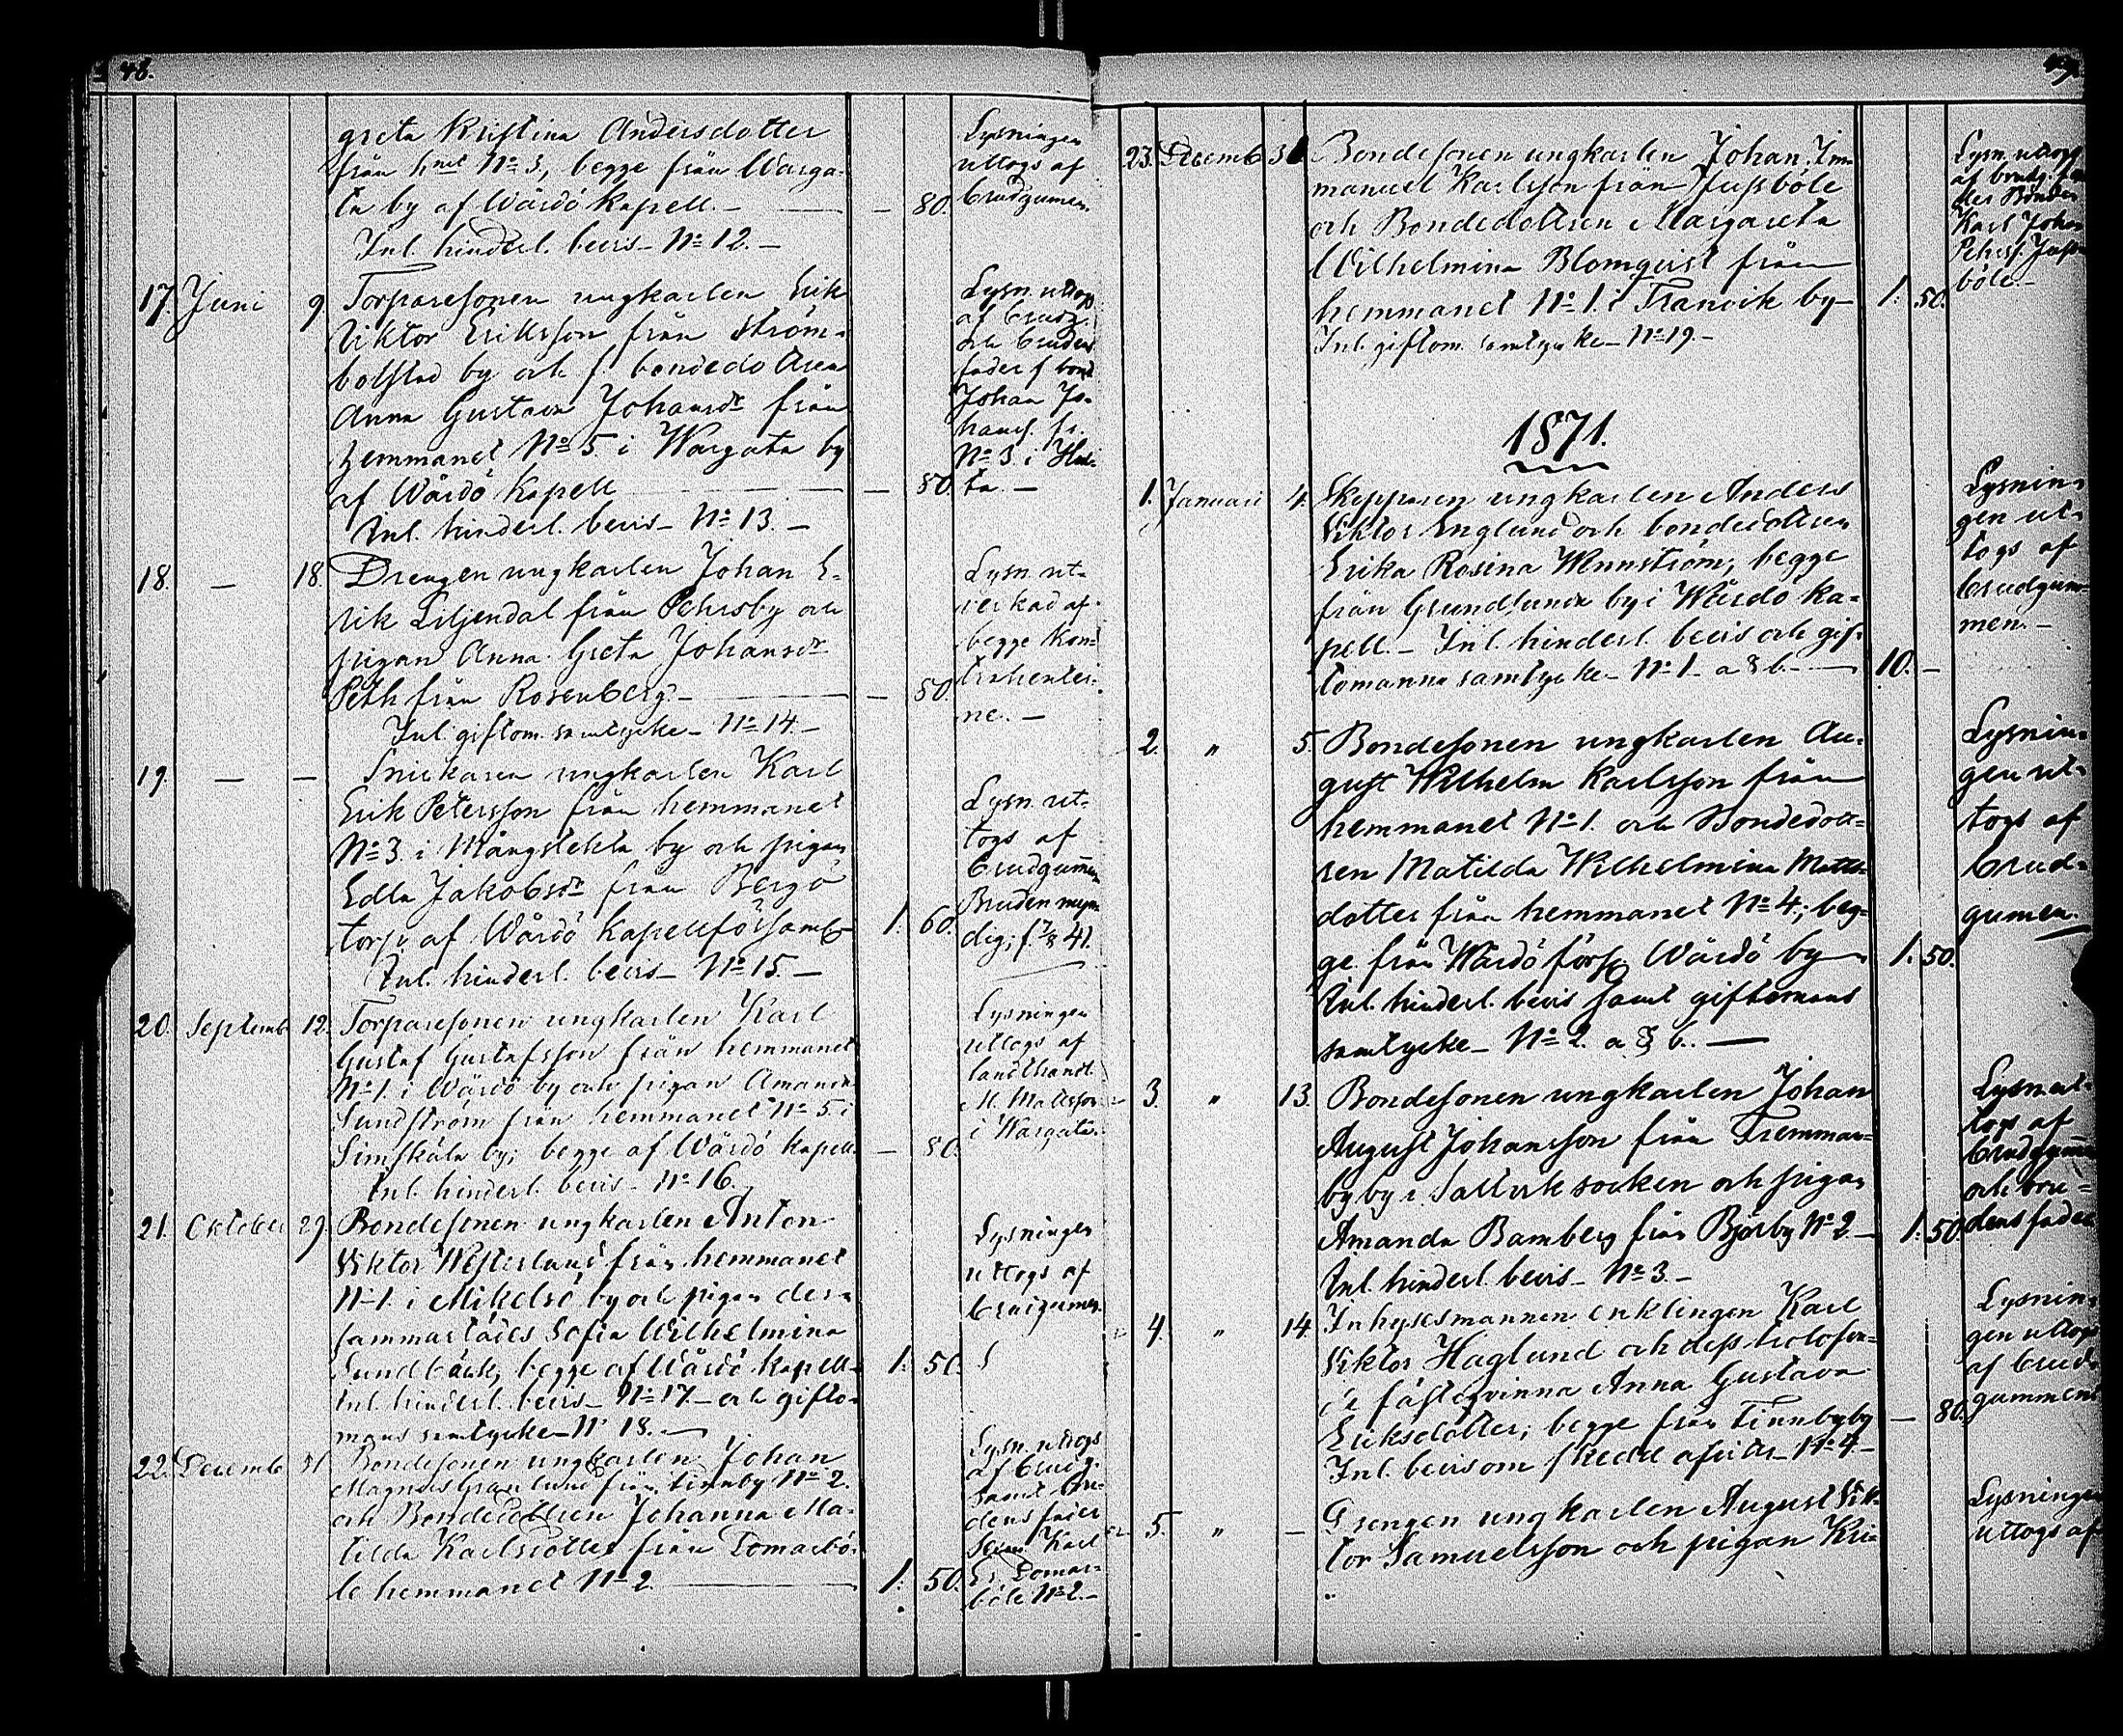 48.
greta Kristina Andersdotter
från hmet No 3, begge från Warga-
ta by af Wårdö Kapell. — — 80.
Inl. hinderl. bevis No 12. —
Lysningen
uttogs af
brudgumen.
17. Juni 9. Torparesonen ungkarlen Erik
Viktor Eriksson från Ström-
bolstad by och f. bondedottren
Anna Gustava Johansdr från
hemmanet No 5 i Wargata by
af Wårdö Kapell — 80.
Inl. hinderl. bevis No 13. —
Lysn. uttogs
af brudg.
och brudens
fader f. bond
Johan Jo-
hanss. fr.
No 3 i
ta. —
18. — 18. Drengen ungkarlen Johan E-
rik Liljendal från Pehrsby och
pigan Anna Greta Johansdr
Peth från Rosenberg. — 80.
Inl. giftom. samtycke No 14. —
Lysn. ut-
verkad af
begge Kon-
trahenter-
ne. —
19. — — Snickaren ungkarlen Karl
Erik Petersson från hemmanet
No 3 i Mångstekta by och pigan
Edla Jakobsdr från Bergö
torp af Wårdö Kapellförsaml. 1. 60.
Inl. hinderl. bevis No 15. —
Lysn. ut-
togs af
brudgummen
Bruden myn-
dig; f. 7/8 41.
20. Septemb 12. Torparesonen ungkarlen Karl
Gustaf Gustafsson från hemmanet
No 1. i Wårdö by och pigan Amanda
Sundström från hemmanet No 5 i
Simskäla by; begge af Wårdö Kapell. — 80.
Inl. hinderl. bevis No 16.
Lysningen
uttogs af
landthandl.
M. Mattsson
i Wargata.
21. Oktober 29. Bondesonen ungkarlen Anton
Viktor Westerlund från hemmanet
No 1. i Mikelsö by och pigan der-
sammastädes Sofia Wilhelmina
Sundbäck, begge af Wårdö Kapell. 1. 50.
Inl. hinderl. bevis No 17. och gifto-
mans samtycke No 18. —
Lysningen
uttogs af
brudgumen.
22. Decemb 31 Bondesonen ungkarlen Johan
Magnus Granlund från Finnby No 2.
och Bondedottren Johanna Ma-
tilda Karlsdotter från Domarbö-
le hemmanet No 2. — 1. 50.
Lysn. uttogs
af brudg.
samt bru-
dens fader
Karl
Er. Domar-
böle No 2. —
49
23. Decemb 31 Bondesonen ungkarlen Johan Im-
manuel Karlsson från Jussböle
och Bondedottren Margareta
Wilhelmina Blomqvist från
hemmanet No 1. i Tranvik by — 1. 50.
Inl. giftom. samtycke No 19. —
Lysn. uttogs
af brudg.
der Bonden
Karl Johan
Pehrss. Juss-
böle. —
1871.
1. Januari 4. Skepparen ungkarlen Anders
Viktor Englund och bondedottren
Erika Rosina Wennström, begge
från Grundsunda by i Wårdö ka-
pell. — Inl. hinderl. bevis och gif-
tomanna samtycke No 1. a & b. — 10. —
Lysnin-
gen ut-
togs af
brudgum-
men. —
2. " 5. Bondesonen ungkarlen Au-
gust Wilhelm Karlsson från
hemmanet No 1. och Bondedott-
ren Matilda Wilhelmina Matts-
dotter från hemmanet No 4; beg-
ge från Wårdö förs. Wårdö by 1. 50.
Inl. hinderl. bevis samt giftomans
samtycke No 2. a & b. —
Lysnin-
gen ut-
togs af
brud-
gumen.
3. " 13. Bondesonen ungkarlen Johan
August Johansson från Tremman-
by by i Saltvik socken och pigan
Amanda Bamberg från Bjerby No 2. — 1. 50.
Inl. hinderl. bevis No 3. —
Lysn. ut-
togs af
brudgumen
och bru-
dens fader
4. " 14. Inhysesmannen enklingen Karl
Viktor Haglund och dess trolofva-
de fästeqvinna Anna Gustava
Eriksdotter; begge från Finnby by — 80.
Inl. bevis om skedd afvitr. No 4. —
Lysnin-
gen uttogs
af brud-
gummen
5. " — Drengen ungkarlen August Vik-
tor Samuelsson och pigan Kri-
Lysningen
uttogs af